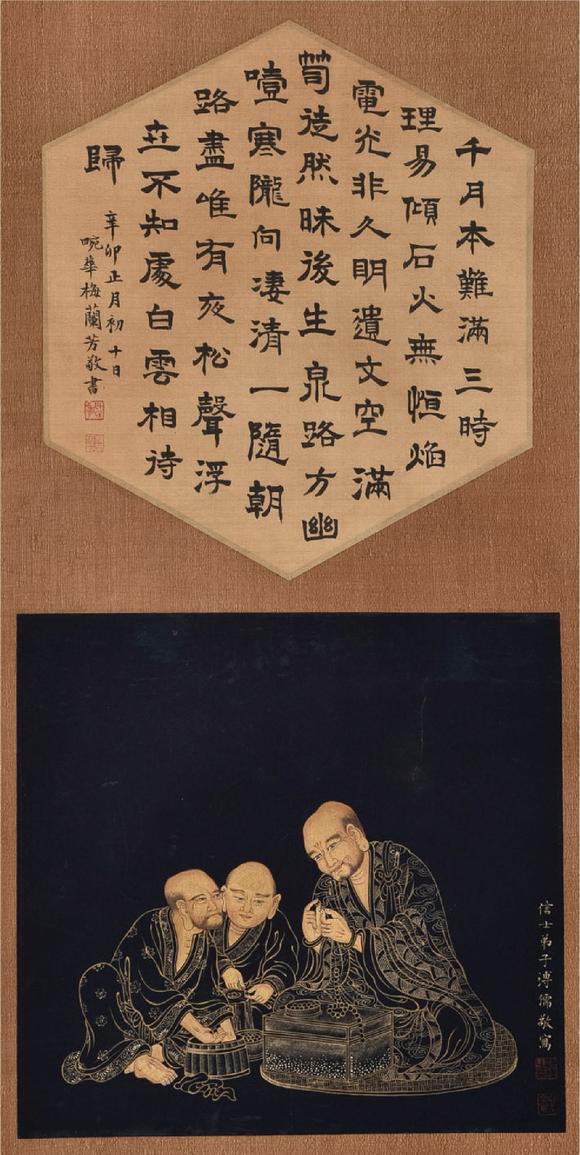 千月本難滿三時
理易傾石火無恒焰
電光非久明遺文空滿
笥徒然昧後生泉路方幽
噎寒隴向淒清一隨朝
路盡唯有夜松聲浮
丘不知處白雲相待
歸
辛卯正月初十日
畹華梅蘭芳敬書
信士弟子溥儒敬寫